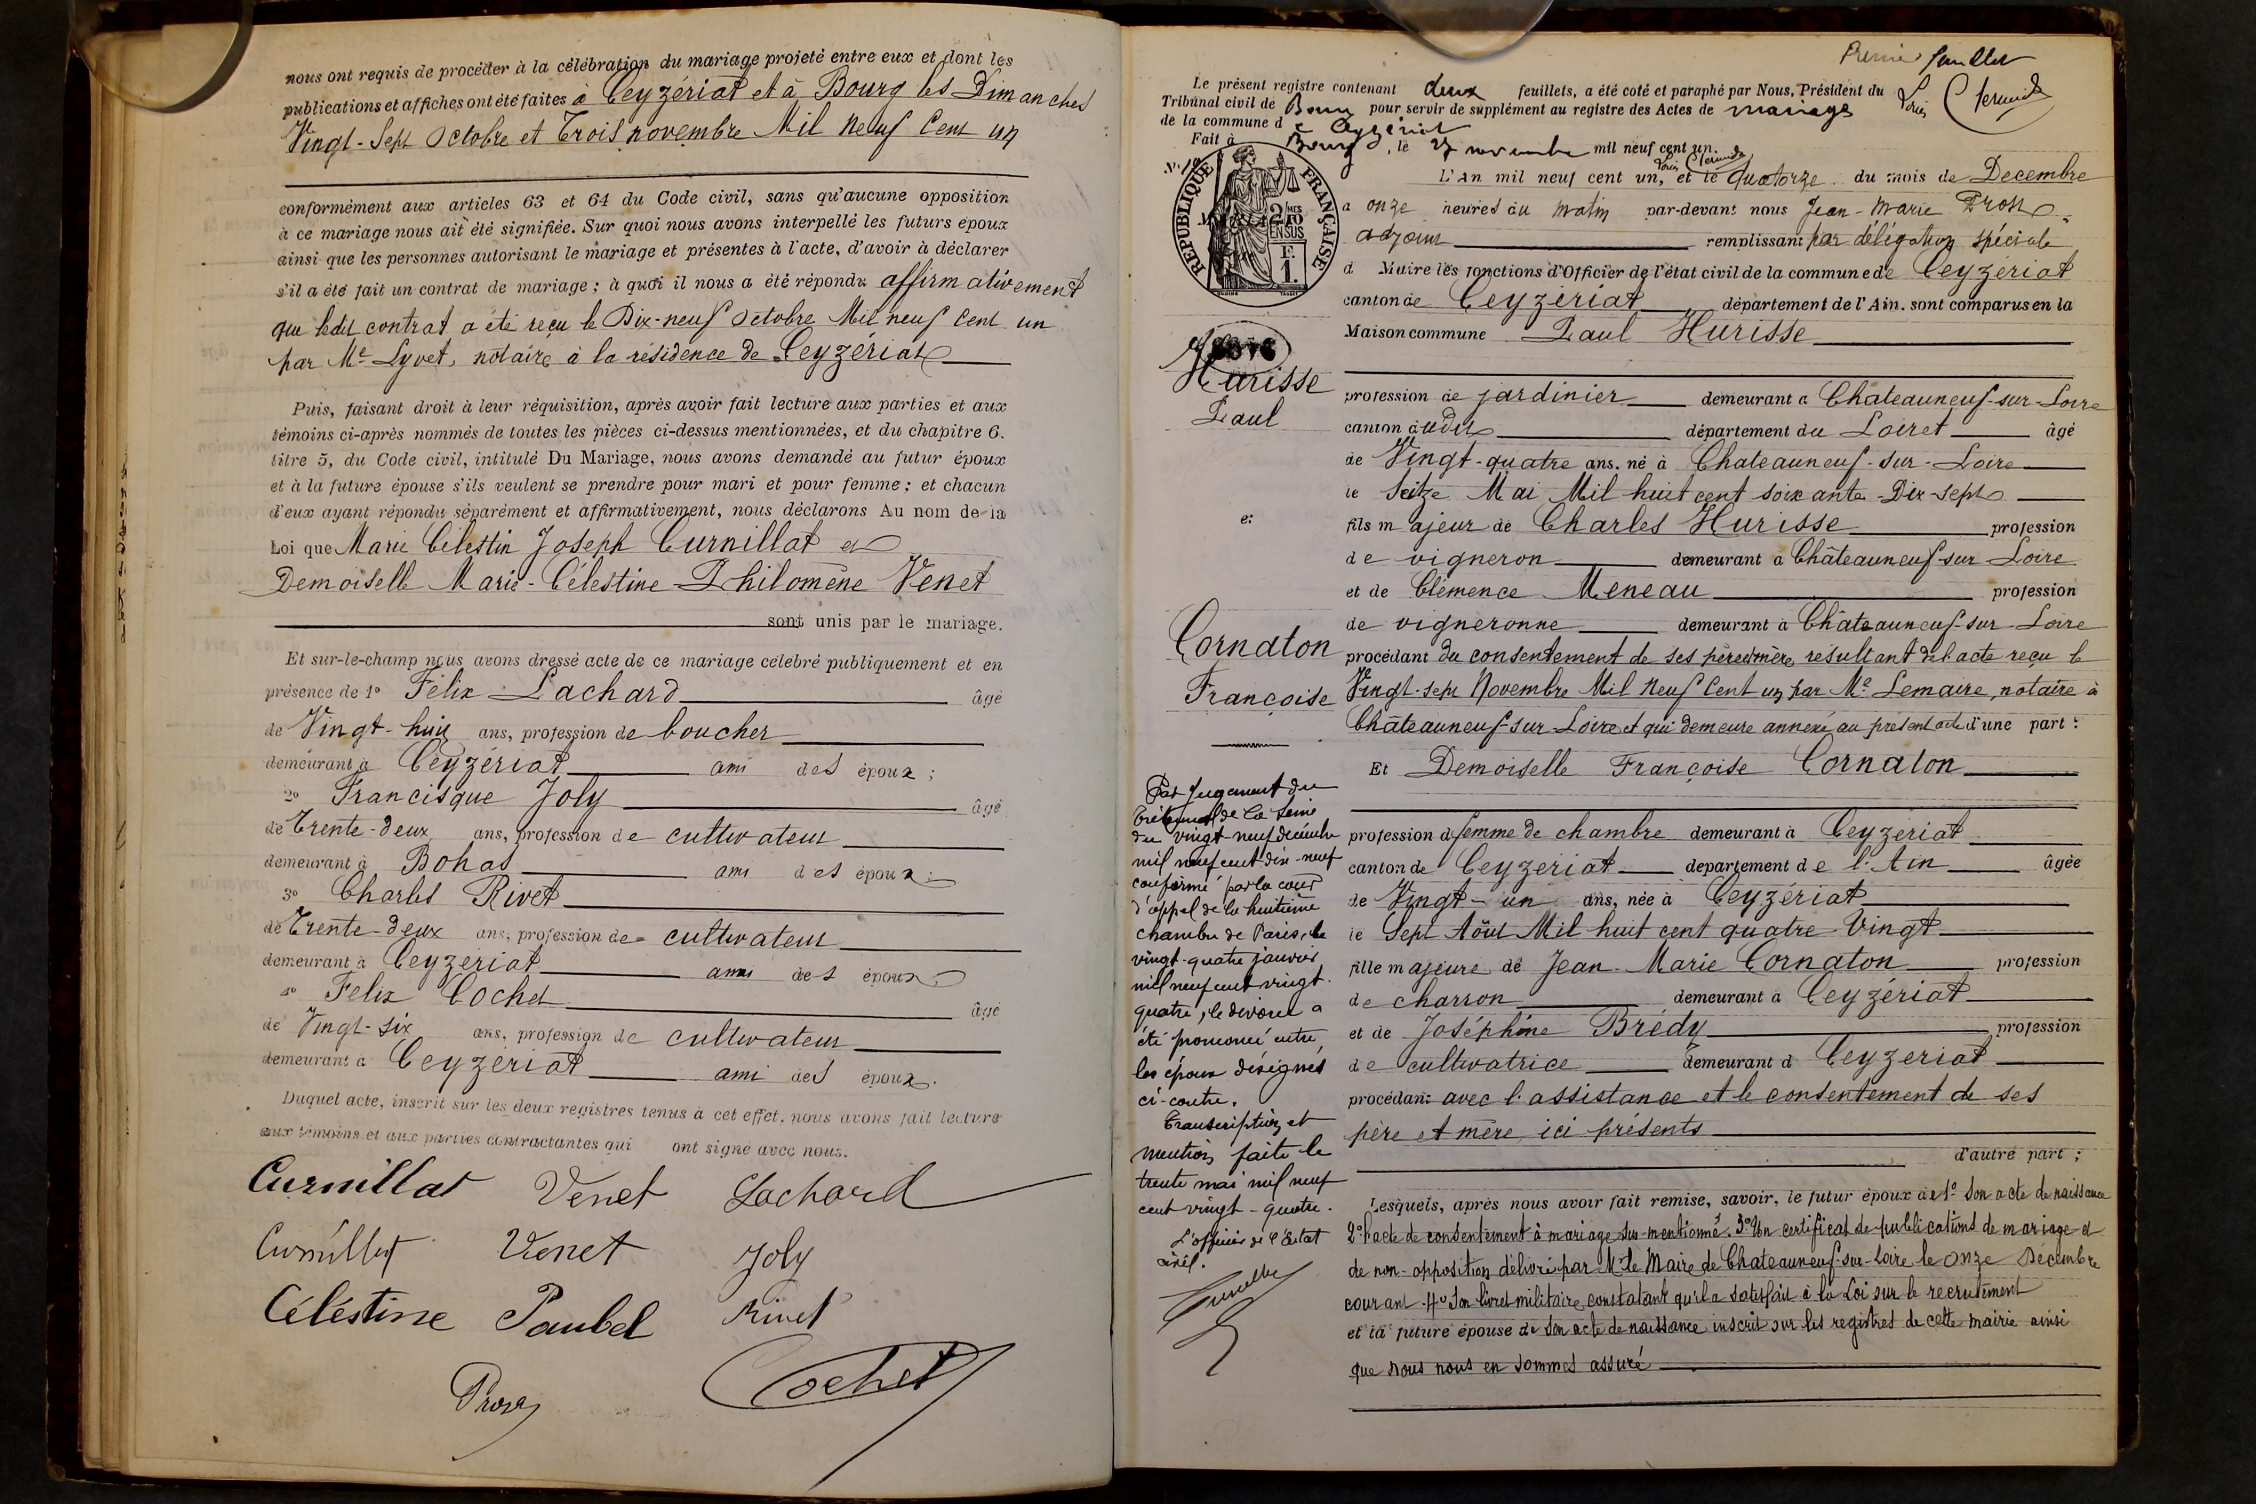 nous ont requis de procéder à la célébration du mariage projeté entre eux et dont les
publications et affiches ont été faites à Ceyzériat et à Bourg les Dimanches
Vingt-Sept Octobre et Trois novembre Mil neuf Cent un
conformément aux articles 63 et 64 du Code civil, sans qu'aucune opposition
à ce mariage nous ait été signifiée. Sur quoi nous avons interpellé les futurs époux
ainsi que les personnes autorisant le mariage et présentes à l'acte, d'avoir à déclarer
s'il a été fait un contrat de mariage ; à quoi il nous a été répondu affirmativement
que ledit contrat a été reçu le Dix-neuf Octobre Mil neuf Cent un
par Me Lyvet, notaire à la résidence de Ceyzériat
Puis, faisant droit à leur réquisition, après avoir fait lecture aux parties et aux
témoins ci-après nommés de toutes les pièces ci-dessus mentionnées, et du chapitre 6.
titre 5, du Code civil, intitulé Du Mariage, nous avons demandé au futur époux
et à la future épouse s'ils veulent se prendre pour mari et pour femme ; et chacun
d'eux ayant répondu séparément et affirmativement, nous déclarons Au nom de la
Loi que Marie Célestin Joseph Curnillat et
Demoiselle Marie-Célestine Philomène Venet
sont unis par le mariage.
Et sur-le-champ nous avons dressé acte de ce mariage célébré publiquement et en
présence de 1° Félix Lachard âgé
de Vingt-huit ans, profession de boucher
demeurant à Ceyzériat ami des époux ;
2° Francisque Joly âgé
de Trente-deux ans, profession de cultivateur
demeurant à Bohas ami des époux ;
3° Charles Rivet
de Trente-deux ans, profession de cultivateur
demeurant à Ceyzériat ami des époux ;
4° Felix Cochet âgé
de Vingt-six ans, profession de cultivateur
demeurant à Ceyzériat ami des époux.
Duquel acte, inscrit sur les deux registres tenus à cet effet, nous avons fait lecture
aux témoins et aux parties contractantes qui ont signé avec nous.
Curnillat Venet Lachard
Curnillat Venet Joly
Céléstine Paubel Rivet
Pros Cochet
Premier feuillet
Le présent registre contenant deux feuillets, a été coté et paraphé par Nous, Président du
Tribunal civil de Bourg pour servir de supplément au registre des Actes de mariage
de la commune de Ceyzériat
Fait à Bourg, le 27 novembre mil neuf cent un.
RÉPUBLIQUE FRANÇAISE
2 MES 10 EN SUS
F. 1.
L'An mil neuf cent un, et le Quatorze du mois de Decembre
a onze heures du matin par-devant nous Jean-Marie Pros
adjoint remplissant par délégation spéciale
d Maire les fonctions d'Officier de l'état civil de la commune de Ceyzériat
canton de Ceyzériat département de l'Ain. sont comparus en la
Maison commune Paul Hurisse
Hurisse
Paul
et
Cornaton
Françoise
profession de jardinier demeurant à Châteauneuf-sur-Loire
canton dudit département du Loiret âgé
de Vingt-quatre ans. né à Chateauneuf-sur-Loire
le Seize Mai Mil huit cent soixante-Dix-sept
fils majeur de Charles Hurisse profession
de vigneron demeurant à Châteauneuf-sur-Loire
et de Clémence Meneau profession
de vigneronne demeurant à Châteauneuf-sur-Loire
procédant du consentement de ses père et mère, résultant de l'acte reçu le
Vingt-sept Novembre Mil Neuf Cent un par Me Lemaire, notaire à
Châteauneuf-sur-Loire et qui demeure annexé au présent acte d'une part :
Et Demoiselle Françoise Cornaton
profession de femme de chambre demeurant à Ceyzériat
canton de Ceyzériat département de l'Ain âgée
de Vingt-un ans, née à Ceyzériat
le Sept Août Mil huit cent quatre Vingt
fille majeure de Jean-Marie Cornaton profession
de charron demeurant à Ceyzériat
et de Joséphine Brédy profession
de cultivatrice demeurant à Ceyzériat
procédant avec l'assistance et le consentement de ses
père et mère, ici présents
d'autre part ;
Lesquels, après nous avoir fait remise, savoir, le futur époux de 1° Son acte de naissance
2° l'acte de consentement à mariage sus-mentionné. 3° Un certificat de publications de mariage et
de non-opposition délivré par Mr le Maire de Chateauneuf-sur-Loire le onze Décembre
courant. 4° Son livret militaire constatant qu'il a satisfait à la Loi sur le recrutement
et la future épouse de Son acte de naissance inscrit sur les registres de cette mairie ainsi
que nous nous en sommes assuré
Par jugement du
tribunal de la Seine
du vingt neuf décembre
mil neuf cent dix-neuf
confirmé par la cour
d'appel de la huitième
chambre de Paris, le
vingt-quatre janvier
mil neuf cent vingt-
quatre, le divorce a
été prononcé entre
les époux désignés
ci-contre.
Transcription et
mention faite le
trente mai mil neuf
cent vingt-quatre.
L'officier de l'Etat
civil.